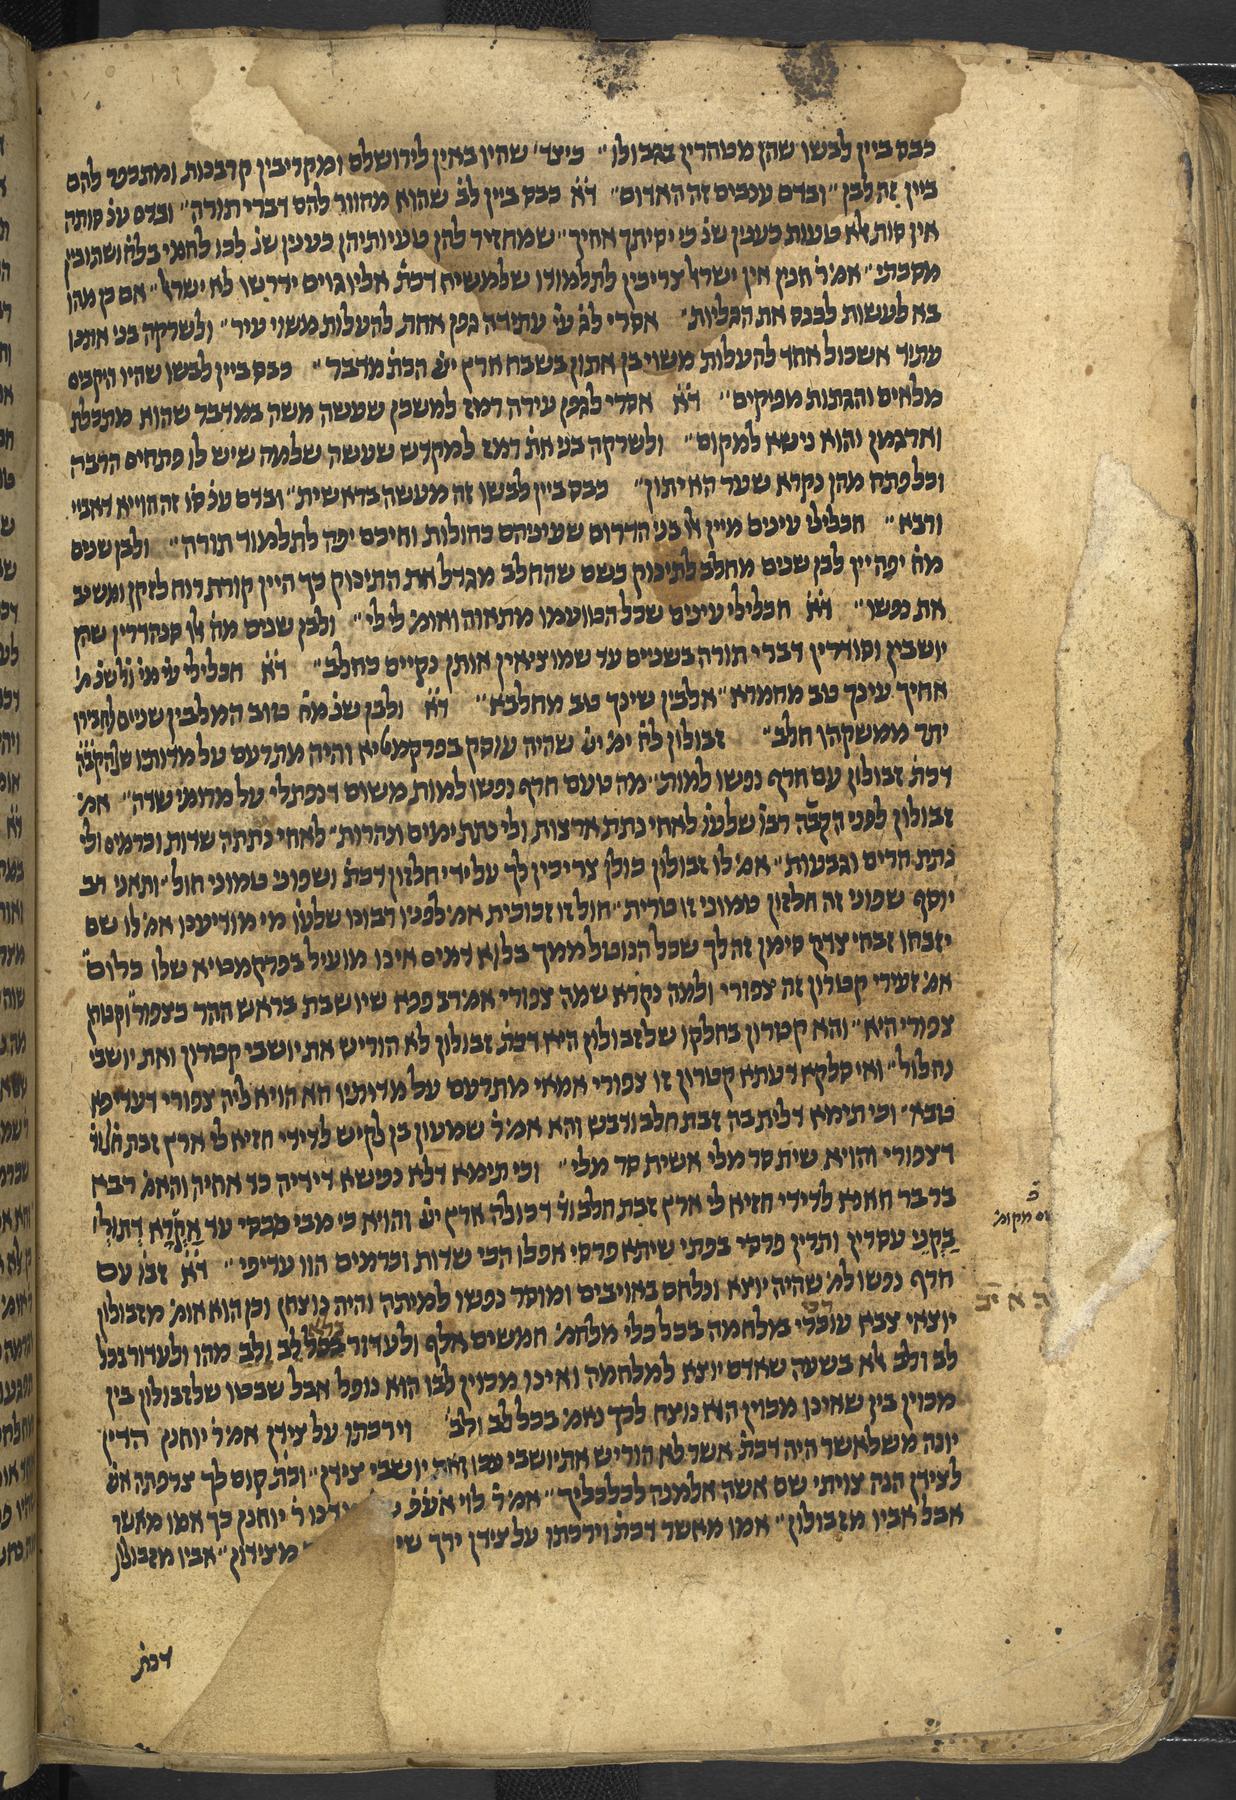 כבס ביין לבשו שהן מטהרין בגבולו״ כיצד׳ שהיו באין לירושלם ומקריבין קרבנות ומתכפר להם
ביין זה לבן ״ובדם ענבים זה האדום״ ד״א כבס ביין לב׳ שהוא מחוור להם דברי תורה״ ובדם ענ׳ סותה
אין סות אלא טעות כענין שנ׳ כי יסיתך אחיך״ שמחזיר להן טעיותיהן כענין שנ׳ לכו לחמי בלח׳ ושתו ביין
מסכתי״ אמ׳ ר׳ חנין אין ישר׳ צריכין לתלמודו שלמשיח דכת׳ אליו גוים ידרשו לא ישר׳״ אם כן מהו
בא לעשות לכנס את הגליות״ אסרי לג׳ עי׳ עתידה גפן אחת להעלות משוי עיר״ ולשרקה בני אתונו
עתיד אשכול אחד להעלות משוי בן אתון בשבח ארץ יש׳ הכת׳ מדבר״ כבס ביין לבשו שהיו היקבים
מלאים והגתות מפיקים״ ד״א אסרי לגפן עירה רמז למשכן שעשה משה במדבר שהוא מתכלת
וארגמן והוא נישא למקום״ ולשרקה בני את׳ רמז למקדש שעשה שלמה שיש לו פתחים הרבה
וכל פתח מהן נקרא שער האיתון״ כבס ביין לבשו זה מעשה בראשית״ ובדם ענ׳ סו׳ זה הוייא דאביי
ורבא״ חכלילי עינים מיין אלו בני הדרום שעיניהם כחולות וחיכם יפה לתלמוד תורה״ ולבן שנים
מח׳ יפה יין לבן שנים מחלב לתינוק כשם שהחלב מגדל את התינוק כך היין קורת רוח לזקן ומשיב
את נפשו״ ד״א חכלילי עינים שכל הטועמו מתאוה ואומ׳ לי לי״ ולבן שנים מח׳ אלו סנהדרין שהן
יושבין וסודדין דברי תורה בשניים עד שמוציאין אותן נקיים כחלב״ ד״א חכלילי עי׳ מי׳ ול׳ שנ׳ מ׳
אחיך עינך טוב מחמרא״ אלבין שינך טב מחלבא״ ד״א ולבן שנ׳ מח׳ טוב המלבין שניים לחבירו
יתר ממשקהו חלב״ זבולון לח׳ ימ׳ יש׳ שהיה עוסק בפרקמטיא והיה מתרעם על מדותיו של הקב״ה
דכת׳ זבולון עם חרף נפשו למות״ מה טעם חרף נפשו למות משום דנפתלי על מרומי שדה״ אמ׳
זבולון לפני הקב״ה רבו׳ שלעו׳ לאחי נתת ארצות ולי נתת ימים ונהרות״ לאחי נתתה שדות וכרמים ולי
נתת הרים וגבעות״ אמ׳ לו זבולון כולן צריכין לך על ידי חלזון דכת׳ ושפוני טמוני חול״ ותאני רב
יוסף שפוני זה חלזון טמוני זו טרית״ חול זו זכוכית אמ׳ לפניו רבונו שלעו׳ מי מודיעני אמ׳ לו שם
יזבחו זבחי צדק סימן זה לך שכל הנוטל ממך בלא דמים אינו מועיל בפרקמטיא שלו כלום״
אמ׳ זעירי קטרון זה צפורי ולמה נקרא שמה צפורי אמ׳ רב פפא שיושבת בראש ההר כצפור״ וקטרון
צפורי היא״ והא קטרון בחלקו שלזבולון היא דכת׳ זבולון לא הוריש את יושבי קטרון ואת יושבי
נהלול״ ואי סלקא דעתא קטרון זו צפורי אמאי מתרעם על מדותיו הא הויא ליה צפורי דעדיפא
טבא״ וכי תימא דלית בה זבת חלב ודבש והא אמ׳ ר׳ שמעון בן לקיש לדידי חזיא לי ארץ זבת ח׳ וד׳
דצפורי והויא שית סר מלי אשית סר מלי״ וכי תימא דלא נפישא דידיה כד אחיה והאמ׳ רבא
בר בר חאנא לדידי חזיא לי ארץ זבת חלב וד׳ דכולה ארץ יש׳ והויא כי מבי מכסי עד אַקְרָא דְתוּלִי
בַקְנֵי עסרין ותרין פרסי בפתי שיתא פרסי אפלו הכי שדות וכרמים הוו עדיפי״ ד״א זבו׳ עם
חרף נפשו למ׳ שהיה יוצא ונלחם באויבים ומוסר נפשו למיתה והיה נוצח׳ וכן הוא אומ׳ מזבולון
יוצאי צבא עורכי במלחמה בכל כלי מלחמ׳ חמשים אלף ולעדור בלא לב ולב מהו ולעדור בכל
לב ולב לא בשעה שאדם יוצא למלחמה ואינו מכוין לבו הוא נופל אבל שבטו שלזבולון בין
מכוין בין שאינן מכוין הוא נוצח לכך נאמ׳ בכל לב ולב׳ וירכתו על צידן אמ׳ ר׳ יוחנן הדין
יונה משלאשר היה דכת׳ אשר לא הוריש את יושבי עכו ואת יושבי צידון״ וכת׳ קום לך צרפתה אש׳
לצידון הנה צויתי שם אשה אלמנה לכלכליך״ אמ׳ ר׳ לוי ר׳ יוחנן כך אמו מאשר
אבל אביו מזבולון״ אמו מאשר דכת׳ וירכתו על צידן ירך מצידון״ אביו מזבולון
דכת׳
מקומ׳
ה א יב